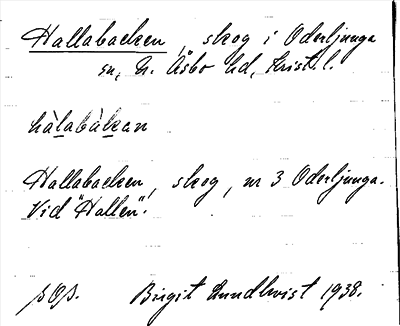 Hallabacken, skog i Oderljunga
sn, N. Åsbo hd, Krist. l.
hàlabàkan
Hallabacken, skog, nr 3 Oderljunga.
Vid "Hallen".
Birgit Lundkvist 1938.